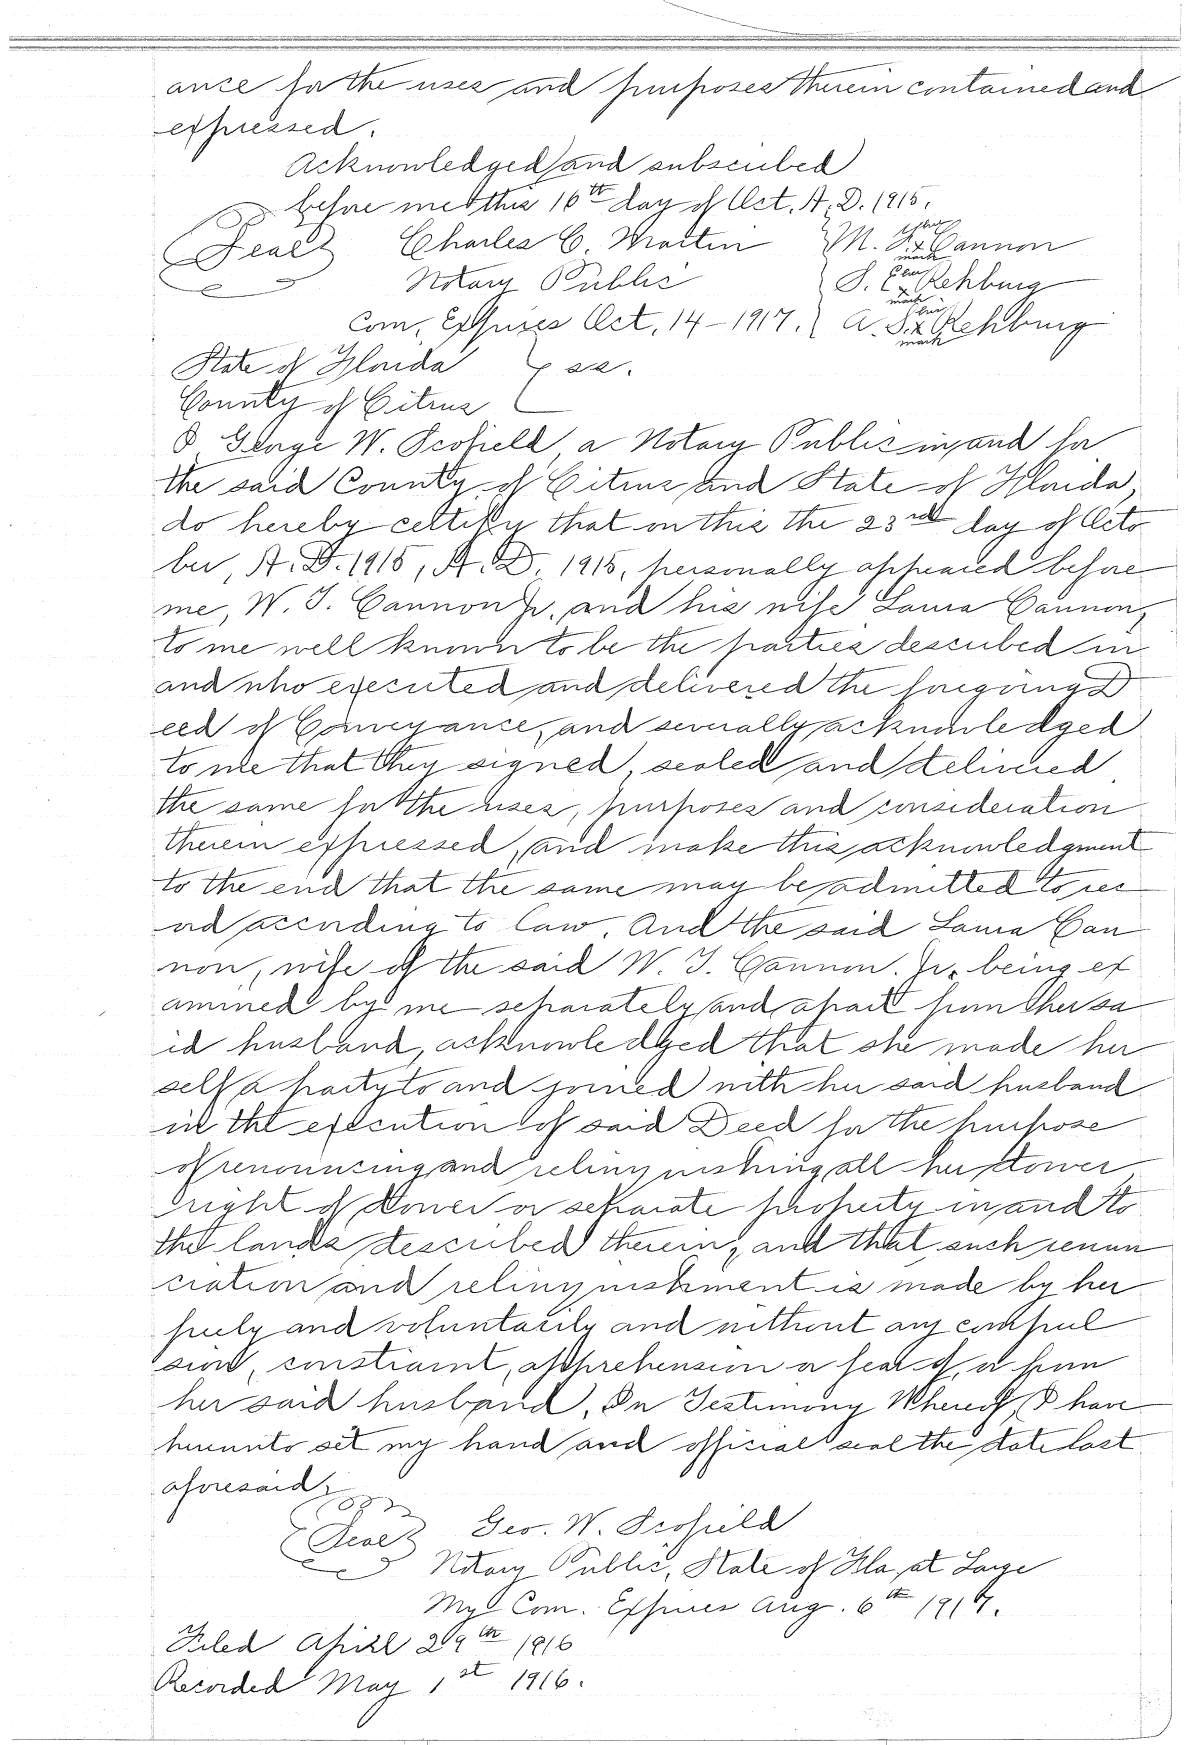 ance for the uses and purposes therein contained and
expressed.
Acknowledged and subscribed
before me this 16th day of Oct. A. D. 1915.
Seal Charles C. Martin M. S. x Cannon
her
mark
Notary Public S. E. x Rehburg
her
mark
Com. Expires Oct, 14-1917. A. S. x Rehburg
his
mark
State of Florida ss.
County of Citrus
I George W. Scofield, a Notary Public in and for
the said County of Citrus and State of Florida,
do hereby certify that on this the 23rd day of Octo
ber, A. D. 1915, A. D. 1915, personally appeared before
me, W. J. Cannon Jr. and his wife Laura Cannon,
to me well known to be the parties described in
and who executed and delivered the foregoing D
eed of Conveyance, and severally acknowledged
to me that they signed, sealed and delivered
the same for the uses, purposes and consideration
therein expressed, and make this acknowledgment
to the end that the same may be admitted to rec
ord according to law. And the said Laura Can
non, wife of the said W. J. Cannon. Jr. being ex
amined by me separately and apart from her sa
id husband, acknowledged that she made her
self a party to and joined with her said husband
in the execution of said Deed for the purpose
of renouncing and relinquishing all her dower,
right of dower or separate property in and to
the lands described therein, and that such renun
ciation and relinquishment is made by her
freely and voluntarily and without any compul
sion, constraint, apprehension or fear of, or from
her said husband. In Testimony Whereof, I have
hereunto set my hand and official seal the date last
aforesaid.
Seal Geo. W. Scofield
Notary Public, State of Fla, at Large
My Com. Expires Aug. 6th 1917.
Filed April 29th 1916
Recorded May 1st 1916.